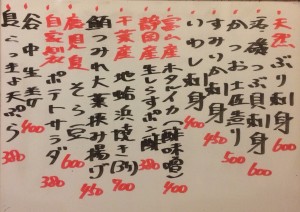 天然ぶり刺身 600
活磯つぶ貝刺身 600
かつお土佐造り 500
すみいか刺身 450
いわし刺身 400
富山産 ホタルイカ(酢味噌) 400
静岡産 生しらすポン酢 380
千葉産 地蛤浜焼き(3ケ) 700
鯵つみれ大葉挟み揚げ 450
鹿児島 そら豆 600
自家製 ポテトサラダ 380
谷中生姜 400
鳥ささ身天ぷら 380